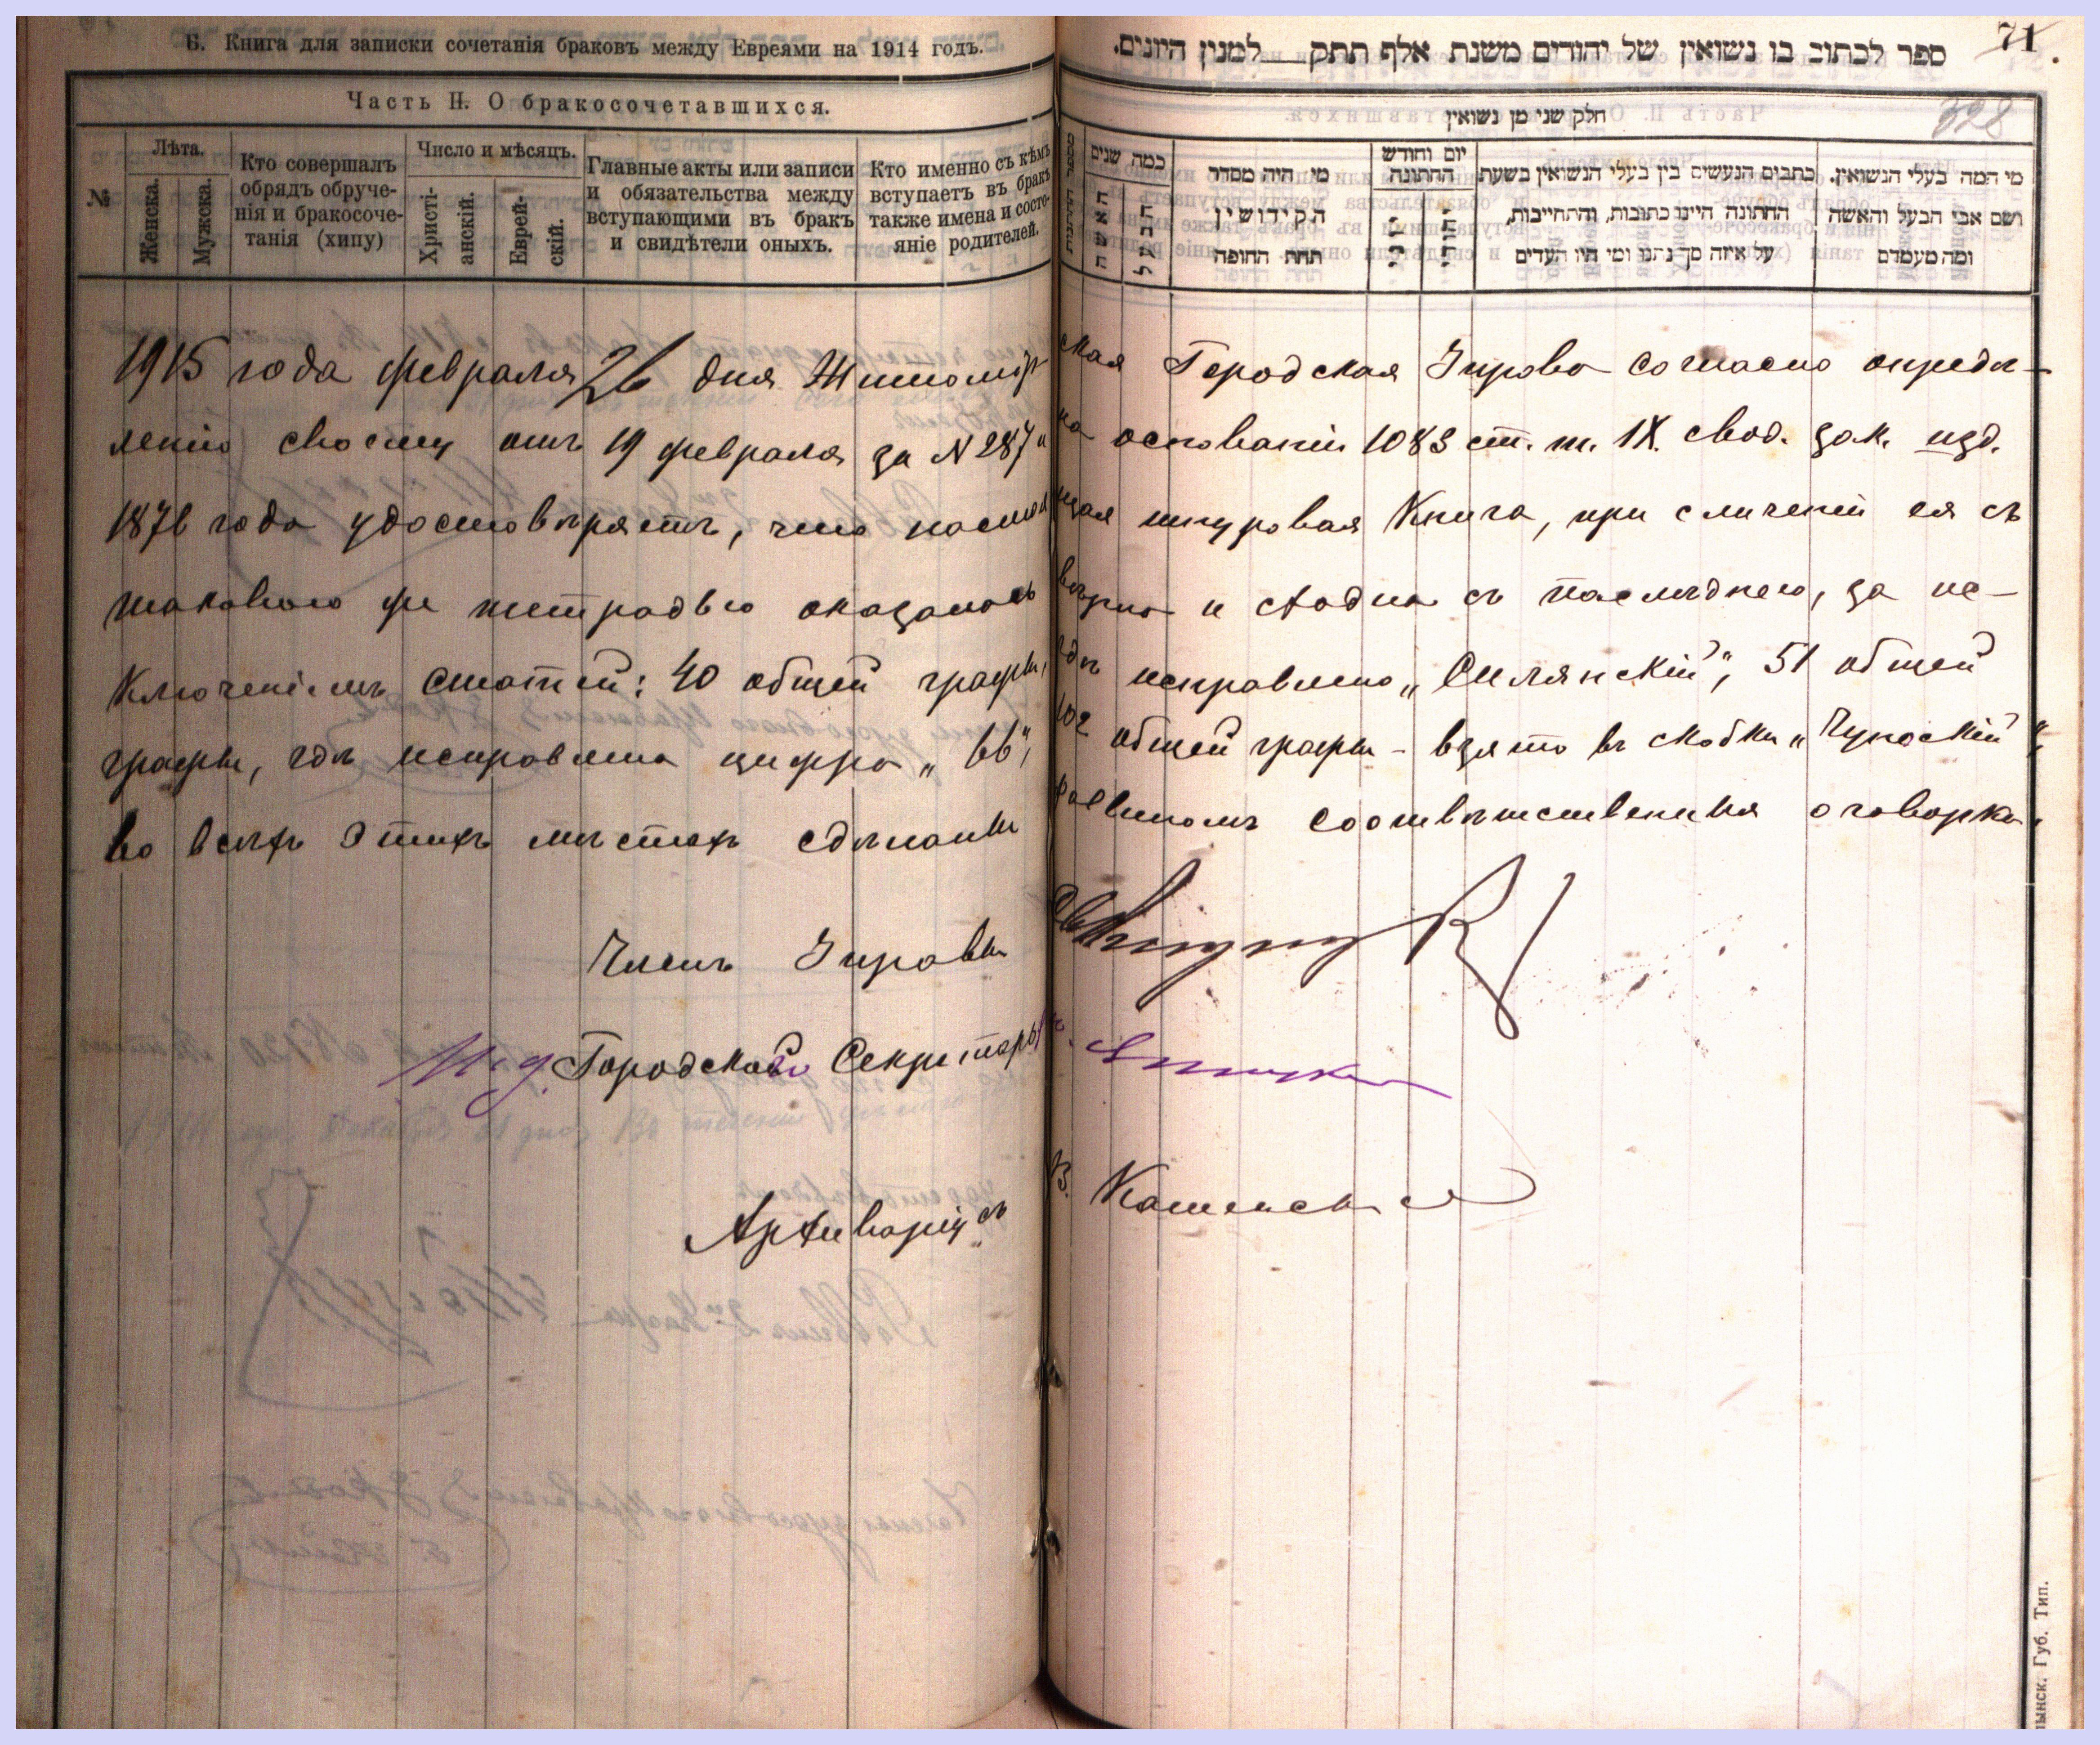 Б. Книга для записки сочетанія браковъ между Евреями на 1914 годъ.
Часть II. О бракосочетавшихся.
№
Лѣта.
Женска.
Мужска.
Кто совершалъ
обрядъ обруче-
нія и бракосоче-
танія (хипу)
Число и мѣсяцъ.
Христі-
анскій.
Еврей-
скій.
Главные акты или записи
и обязательства между
вступающими въ бракъ
и свидѣтели оныхъ.
Кто именно съ кѣмъ
вступаетъ въ бракъ
также имена и состо-
яніе родителей.
71
ספר לכתוב בו נשואין של יהודים משנת אלף תתק למנין היונים.
328
חלק שני מן נשואין
כמה שנים
האשה
הבעל
מי היה מסדר
הקידושין
תחת החופה
יום וחודש
החתונה
כתבים הנעשים בין בעלי הנשואין בשעת
החתונה היינו כתובות, והתחייבות,
על איזה סך נתנו ומי היו העדים
מי המה בעלי הנשואין.
ושם אבי הבעל והאשה
ומה מעמדם
1915 года февраля 26 дня Житомір- ская Городская Управа согласно опредѣ-
ленію своему отъ 19 февраля за N 287 и на основаніи 1083 ст. т. IX. свод. зак. изд.
1876 года удостовѣряетъ, что настоящая шнуровая Книга, при сличеніи ея съ
таковою же тетрадью оказалась вѣрна и сходна съ послѣднею, за ис-
ключеніемъ статей: 40 общей графы, гдѣ исправлено „Смлянскій“, 51 общей
графы, гдѣ исправлена цифра „66“, 102 общей графы - взято въ скобки „Чупоскій“,
во всѣхъ этихъ мѣстахъ сдѣланы раввиномъ соотвѣтственныя оговорки.
Членъ Управы
И. д. Городского Секретаря
Архиваріусъ
В. Каменск
лынск. Губ. Тип.